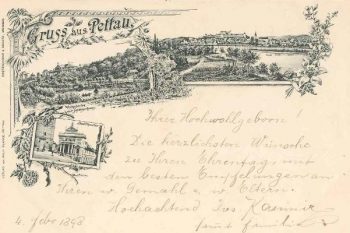 Gruss aus Pettau.
Ihrer Hochwohlgeboren!
Die herzlichsten Wünsche
zu Ihren Ehrentage mit
den besten Empfehlungen an
Ihren w Gemahl u w Eltern.
Hochachtend Jos Kasimir
samt Familie
4. Febr 1898